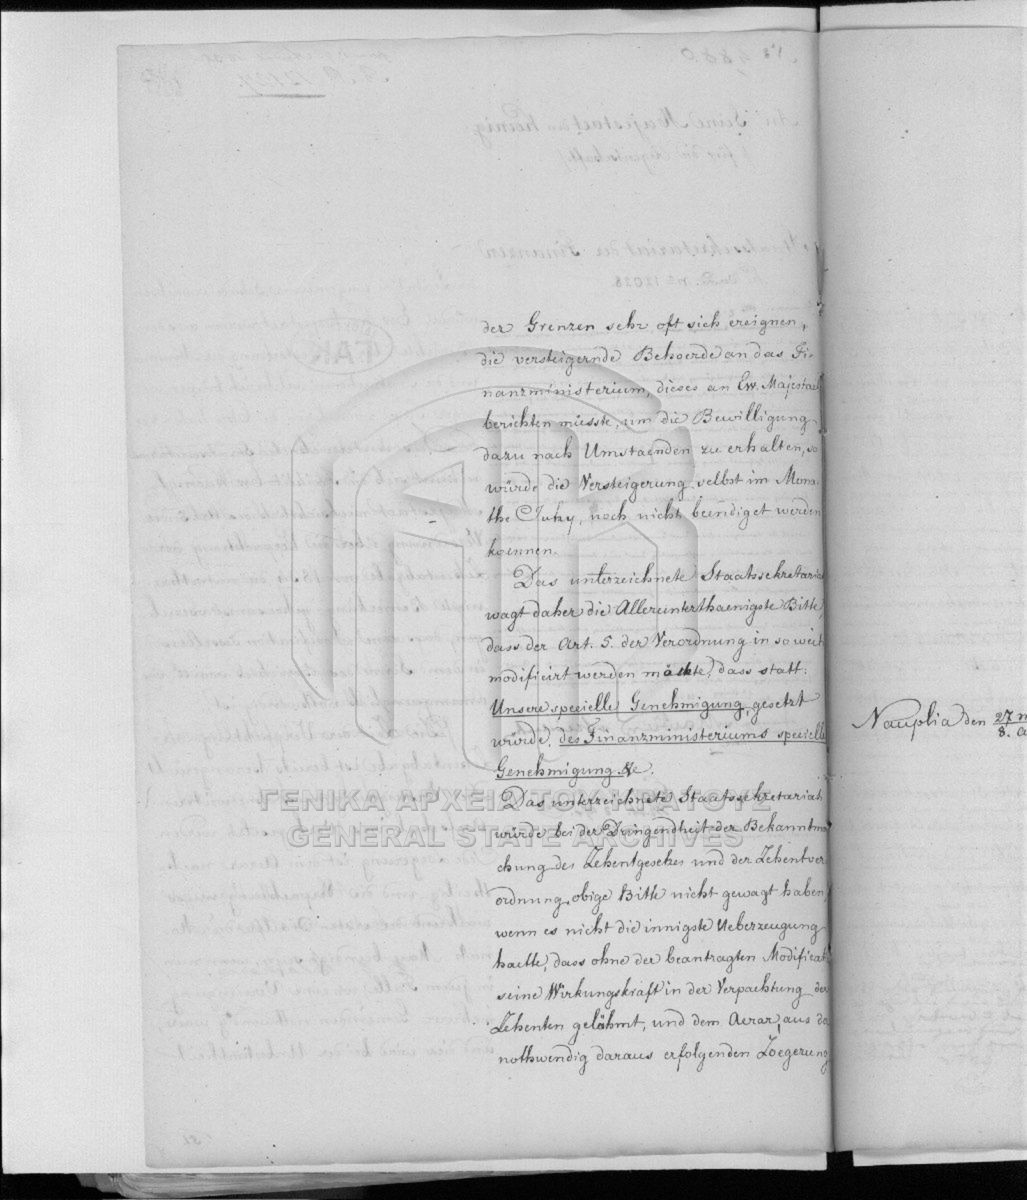 der Grenzen sehr oft sich ereignen,
die versteigernde Behoerde an das Fi-
nanzministerium, dieses an Ew. Majestaet
berichten müsste, um die Bewilligung
dazu nach Umstaenden zu erhalten, so
würde die Versteigerung selbst im Mona-
the July, noch nicht beendiget werden
koennen.
Das unterzeichnete Staatssekretariat
wagt daher die Allerunterthaenigste Bitte,
dass der Art. 5. der Verordnung in so weit
modificirt werden möchte, dass statt:
Unsere specielle Genehmigung, gesetzt
würde, des Finanzministeriums specielle
Genehmigung &c.
ΓΕΝΙΚΑ ΑΡΧΕΙΑ ΤΟΥ ΚΡΑΤΟΥΣ
GENERAL STATE ARCHIVES
Das unterzeichnete Staatssekretariat
würde bei der Dringendheit der Bekanntma-
chung des Zehentgesetzes und der Zehentver-
ordnung, obige Bitte nicht gewagt haben,
wenn es nicht die innigste Ueberzeugung
haette, dass ohne der beantragten Modificat
seine Wirkungskraft in der Verpachtung der
Zehenten gelähmt, und dem Aerar, aus da
nothwendig daraus erfolgenden Zoegerung
Nauplia den 27 m
8. a